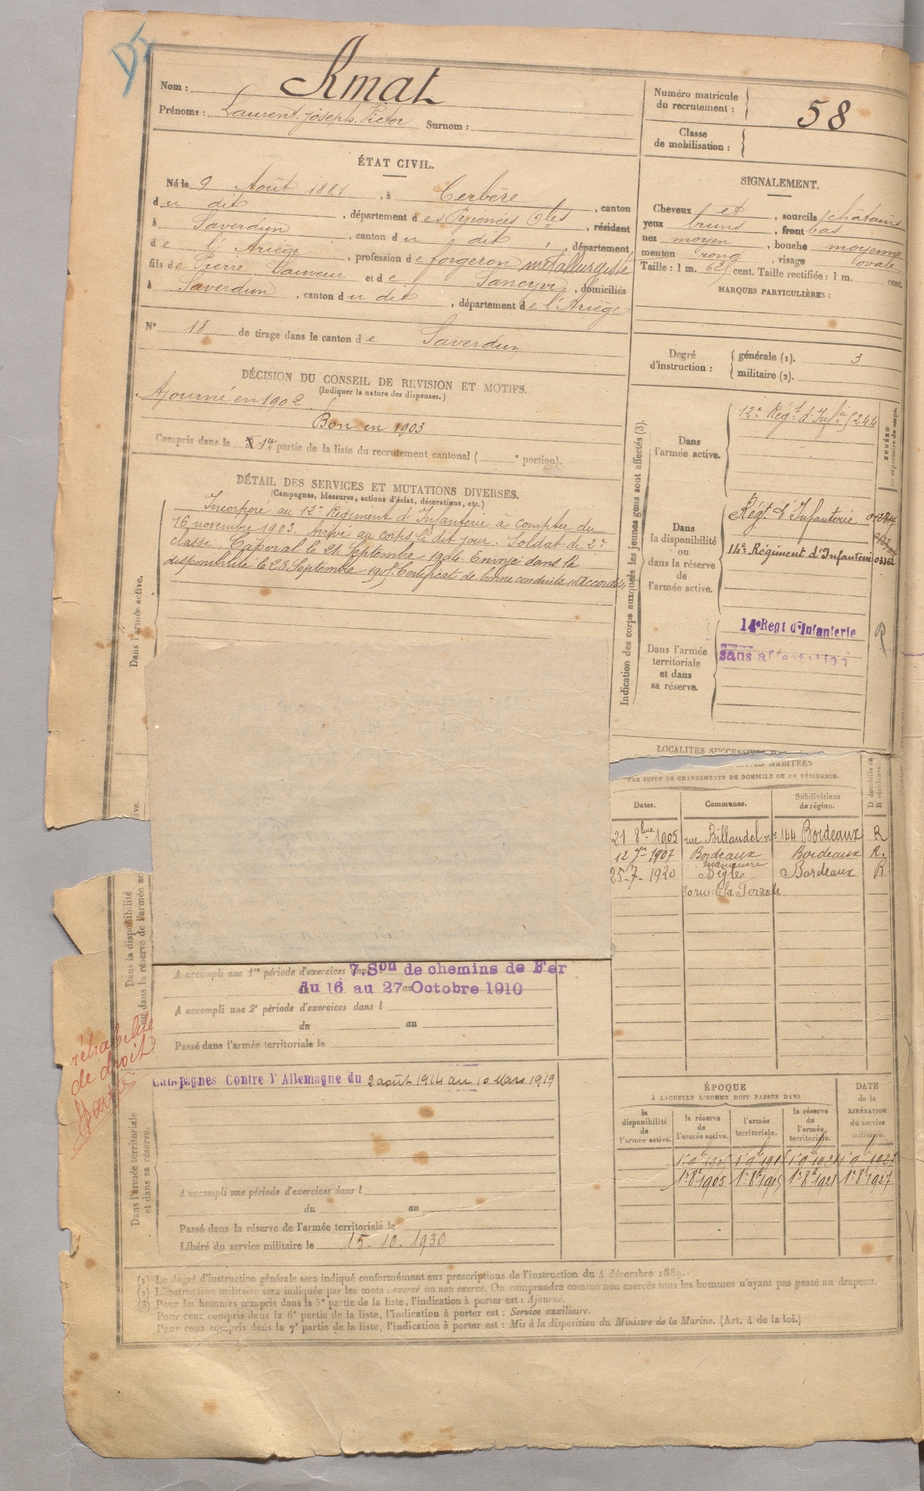 Nom : Amat
Prénoms : Laurent Joseph Victor Surnom :
Numéro matricule du recrutement : 58
Classe de mobilisation :
ÉTAT CIVIL.
Né le 9 Août 1881, à Cerbère, canton
du dit, département des Pyrénées Oles, résidant
à Saverdun, canton du dit, département
de l'Ariège, profession de forgeron métallurgiste
fils de Pierre Sauveur et de, domiciliés
à Saverdun, canton du dit, département de l'Ariège
N° 18 de tirage dans le canton de Saverdun
SIGNALEMENT.
Cheveux et, sourcils châtains
yeux bruns, front bas
nez moyen, bouche moyenne
menton rond, visage ovale
Taille : 1 m. 62 cent. Taille rectifiée : 1 m. cent.
MARQUES PARTICULIÈRES :
Degré d'instruction : générale (1). 3
militaire (2).
DÉCISION DU CONSEIL DE REVISION ET MOTIFS.
(Indiquer la nature des dispenses.)
Ajourné en 1902
Bon en 1903
Compris dans la 1re partie de la liste du recrutement cantonal ( e portion).
DÉTAIL DES SERVICES ET MUTATIONS DIVERSES.
(Campagnes, blessures, actions d'éclat, décorations, etc.)
Incorporé au 12e Régiment d'Infanterie à compter du
16 novembre 1903. Arrivé au corps le dit jour. Soldat de 2e
classe. Caporal le 28 Septembre 1904. Envoyé dans la
disponibilité le 23 Septembre 1905. Certificat de bonne conduite accordé.
Dans l'armée active.
Indication des corps auxquels les jeunes gens sont affectés (3).
Dans l'armée active. 12e Régt d'Infie
Dans la disponibilité ou dans la réserve de l'armée active.
Régt d'Infanterie
14e Régiment d'Infanterie
Dans l'armée territoriale et dans sa réserve.
14e Regt d'Infanterie
sans affectation
LOCALITÉS SUCCESSIVES
HABITÉES
PAR SUITE DE CHANGEMENTS DE DOMICILE OU DE RÉSIDENCE.
Dates. Communes. Subdivisions de région.
21 8bre 1905 rue Billaudel n° 144 Bordeaux R
12 7re 1907 Bordeaux Bordeaux R.
25-7-1920 Bègles Bordeaux R
Dans la disponibilité
ou dans la réserve de l'armée ac
A accompli une 1re période d'exercices dans 7 Son de chemins de Fer
du 16 au 27 Octobre 1910
A accompli une 2e période d'exercices dans l
du au
Passé dans l'armée territoriale le
réhabilité
de droit
Campagnes Contre l'Allemagne du 2 août 1914 au 10 Mars 1919
Dans l'armée territoriale
et dans sa réserve.
A accompli une période d'exercices dans l
du au
Passé dans la réserve de l'armée territoriale le
Libéré du service militaire le 15-10-1930
ÉPOQUE
À LAQUELLE L'HOMME DOIT PASSER DANS
DATE de la LIBÉRATION du service militaire.
la disponibilité de l'armée active. la réserve de l'armée active. l'armée territoriale. la réserve de l'armée territoriale.
(1) Le degré d'instruction générale sera indiqué conformément aux prescriptions de l'instruction du 4 décembre 1889.
(2) L'instruction militaire sera indiquée par les mots : exercé ou non exercé. On comprendra comme non exercés tous les hommes n'ayant pas passé au drapeau.
(3) Pour les hommes compris dans la 5e partie de la liste, l'indication à porter est : Ajourné.
Pour ceux compris dans la 6e partie de la liste, l'indication à porter est : Service auxiliaire.
Pour ceux compris dans la 7e partie de la liste, l'indication à porter est : Mis à la disposition du Ministre de la Marine. (Art. 4 de la loi.)